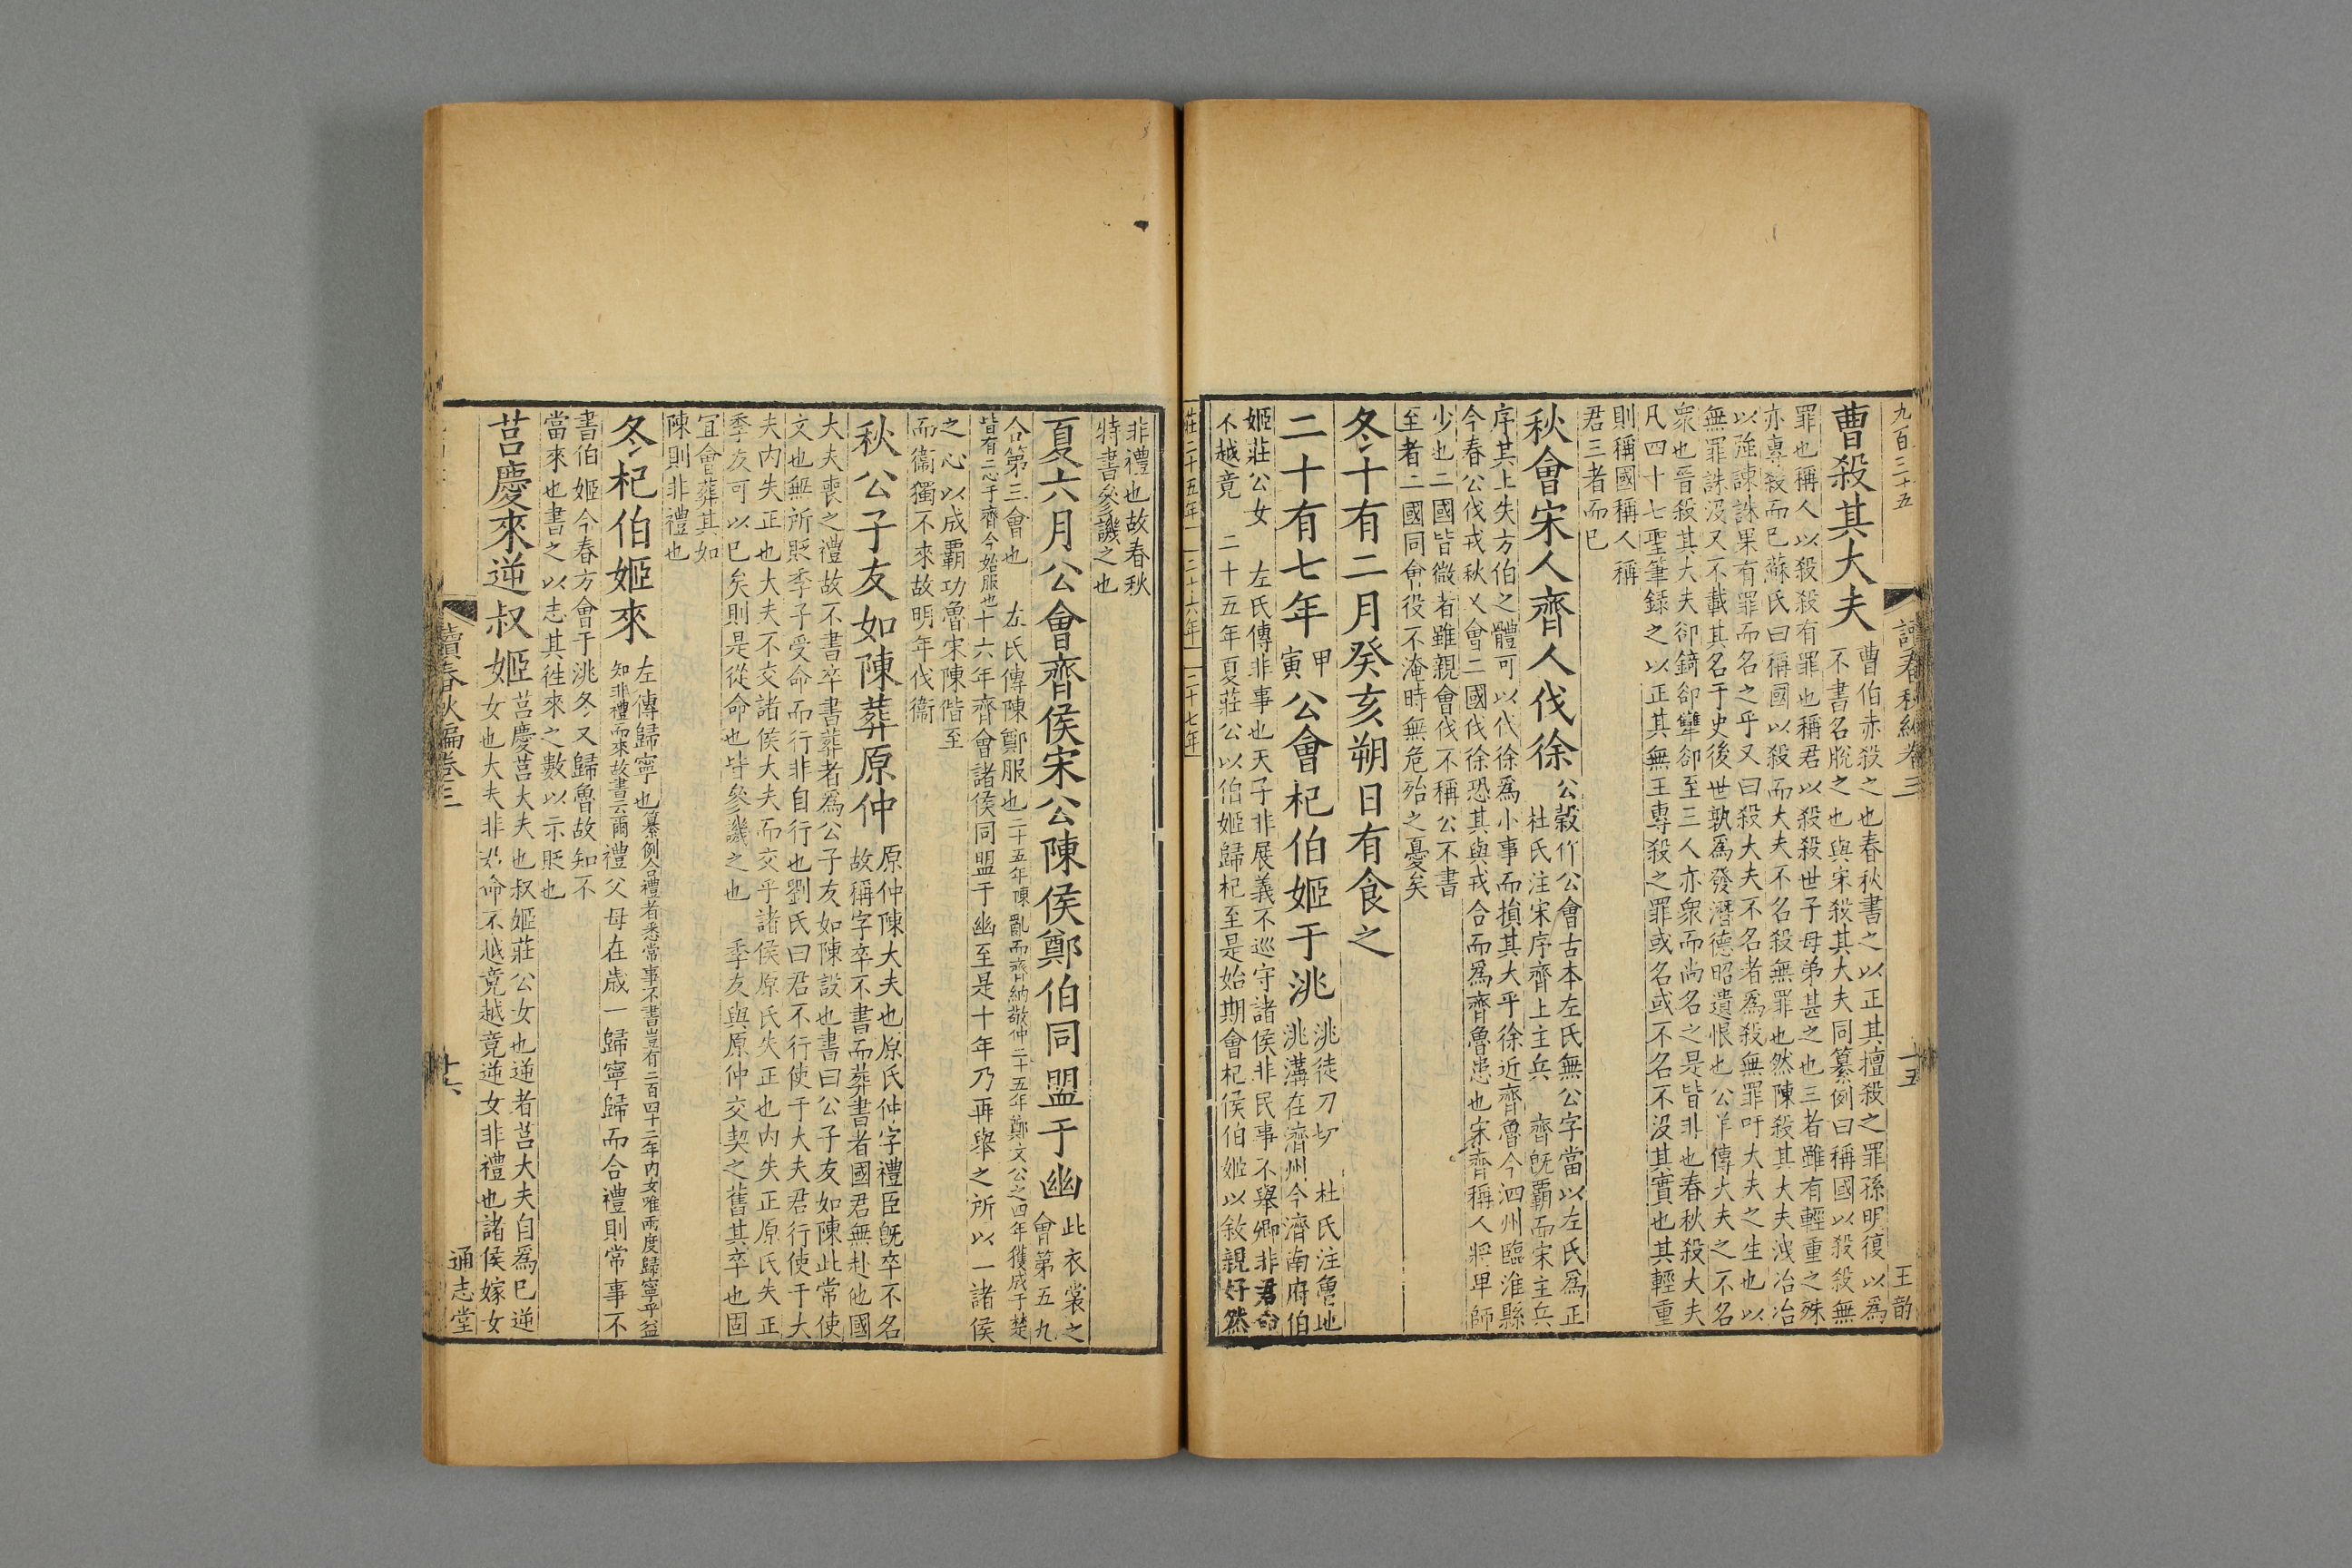 九百三十五
讀春秋編卷三
十五
王韵
曹殺其大夫
曹伯赤殺之也春秋書之以正其擅殺之罪孫明復以爲
不書名脫之也與宋殺其大夫同纂例曰稱國以殺殺無
罪也稱人以殺殺有罪也稱君以殺殺世子母弟甚之也三者雖有輕重之殊
亦專殺而已蘇氏曰稱國以殺而大夫不名殺無罪也然陳殺其大夫洩冶冶
以強諫誅果有罪而名之乎又曰殺大夫不名者爲殺無罪吁大夫之生也以
無罪誅沒又不載其名于史後世孰爲發潛德昭遺恨也公羊傳大夫之不名
衆也晉殺其大夫卻錡卻犫卻至三人亦衆而尚名之是皆非也春秋殺大夫
凡四十七聖筆録之以正其無王專殺之罪或名或不名不沒其實也其輕重
則稱國稱人稱
君三者而已
秋會宋人齊人伐徐
公穀作公會古本左氏無公字當以左氏爲正
杜氏注宋序齊上主兵 齊旣覇而宋主兵
序其上失方伯之體可以伐徐爲小事而損其大乎徐近齊魯今泗州臨淮縣
今春公伐戎秋又會二國伐徐恐其與戎合而爲齊魯患也宋齊稱人將卑師
少也二國皆微者雖親會伐不稱公不書
至者二國同會役不淹時無危殆之憂矣
冬十有二月癸亥朔日有食之
二十有七年
甲
寅
公會杞伯姬于洮
洮徒刀切 杜氏注魯地
洮溝在濟州今濟南府伯
姬莊公女 左氏傳非事也天子非展義不巡守諸侯非民事不舉卿非君命
不越竟 二十五年夏莊公以伯姬歸杞至是始期會杞侯伯姬以敘親好然
莊二十五年 二十六年 二十七年
非禮也故春秋
特書參譏之也
夏六月公會齊侯宋公陳侯鄭伯同盟于幽
此衣裳之
會第五九
合第三會也 左氏傳陳鄭服也二十五年陳亂而齊納敬仲二十五年鄭文公之四年獲成于楚
皆有二心于齊今始服也十六年齊會諸侯同盟于幽至是十年乃再舉之所以一諸侯
之心以成覇功魯宋陳偕至
而衞獨不來故明年伐衞
秋公子友如陳葬原仲
原仲陳大夫也原氏仲字禮臣旣卒不名
故稱字卒不書而葬書者國君無赴他國
大夫喪之禮故不書卒書葬者爲公子友如陳設也書曰公子友如陳此常使
文也無所貶季子受命而行非自行也劉氏曰君不行使于大夫君行使于大
夫内失正也大夫不交諸侯大夫而交乎諸侯原氏失正也内失正原氏失正
季友可以已矣則是從命也皆參譏之也 季友與原仲交契之舊其卒也固
宜會葬其如
陳則非禮也
冬杞伯姬來
左傳歸寧也纂例合禮者悉常事不書豈有二百四十二年内女唯兩度歸寧乎益
知非禮而來故書云爾禮父母在歲一歸寧歸而合禮則常事不
書伯姬今春方會于洮冬又歸魯故知不
當來也書之以志其往來之數以示貶也
莒慶來逆叔姬
莒慶莒大夫也叔姬莊公女也逆者莒大夫自爲已逆
女也大夫非君命不越竟越竟逆女非禮也諸侯嫁女
讀春秋編卷三
十六
通志堂